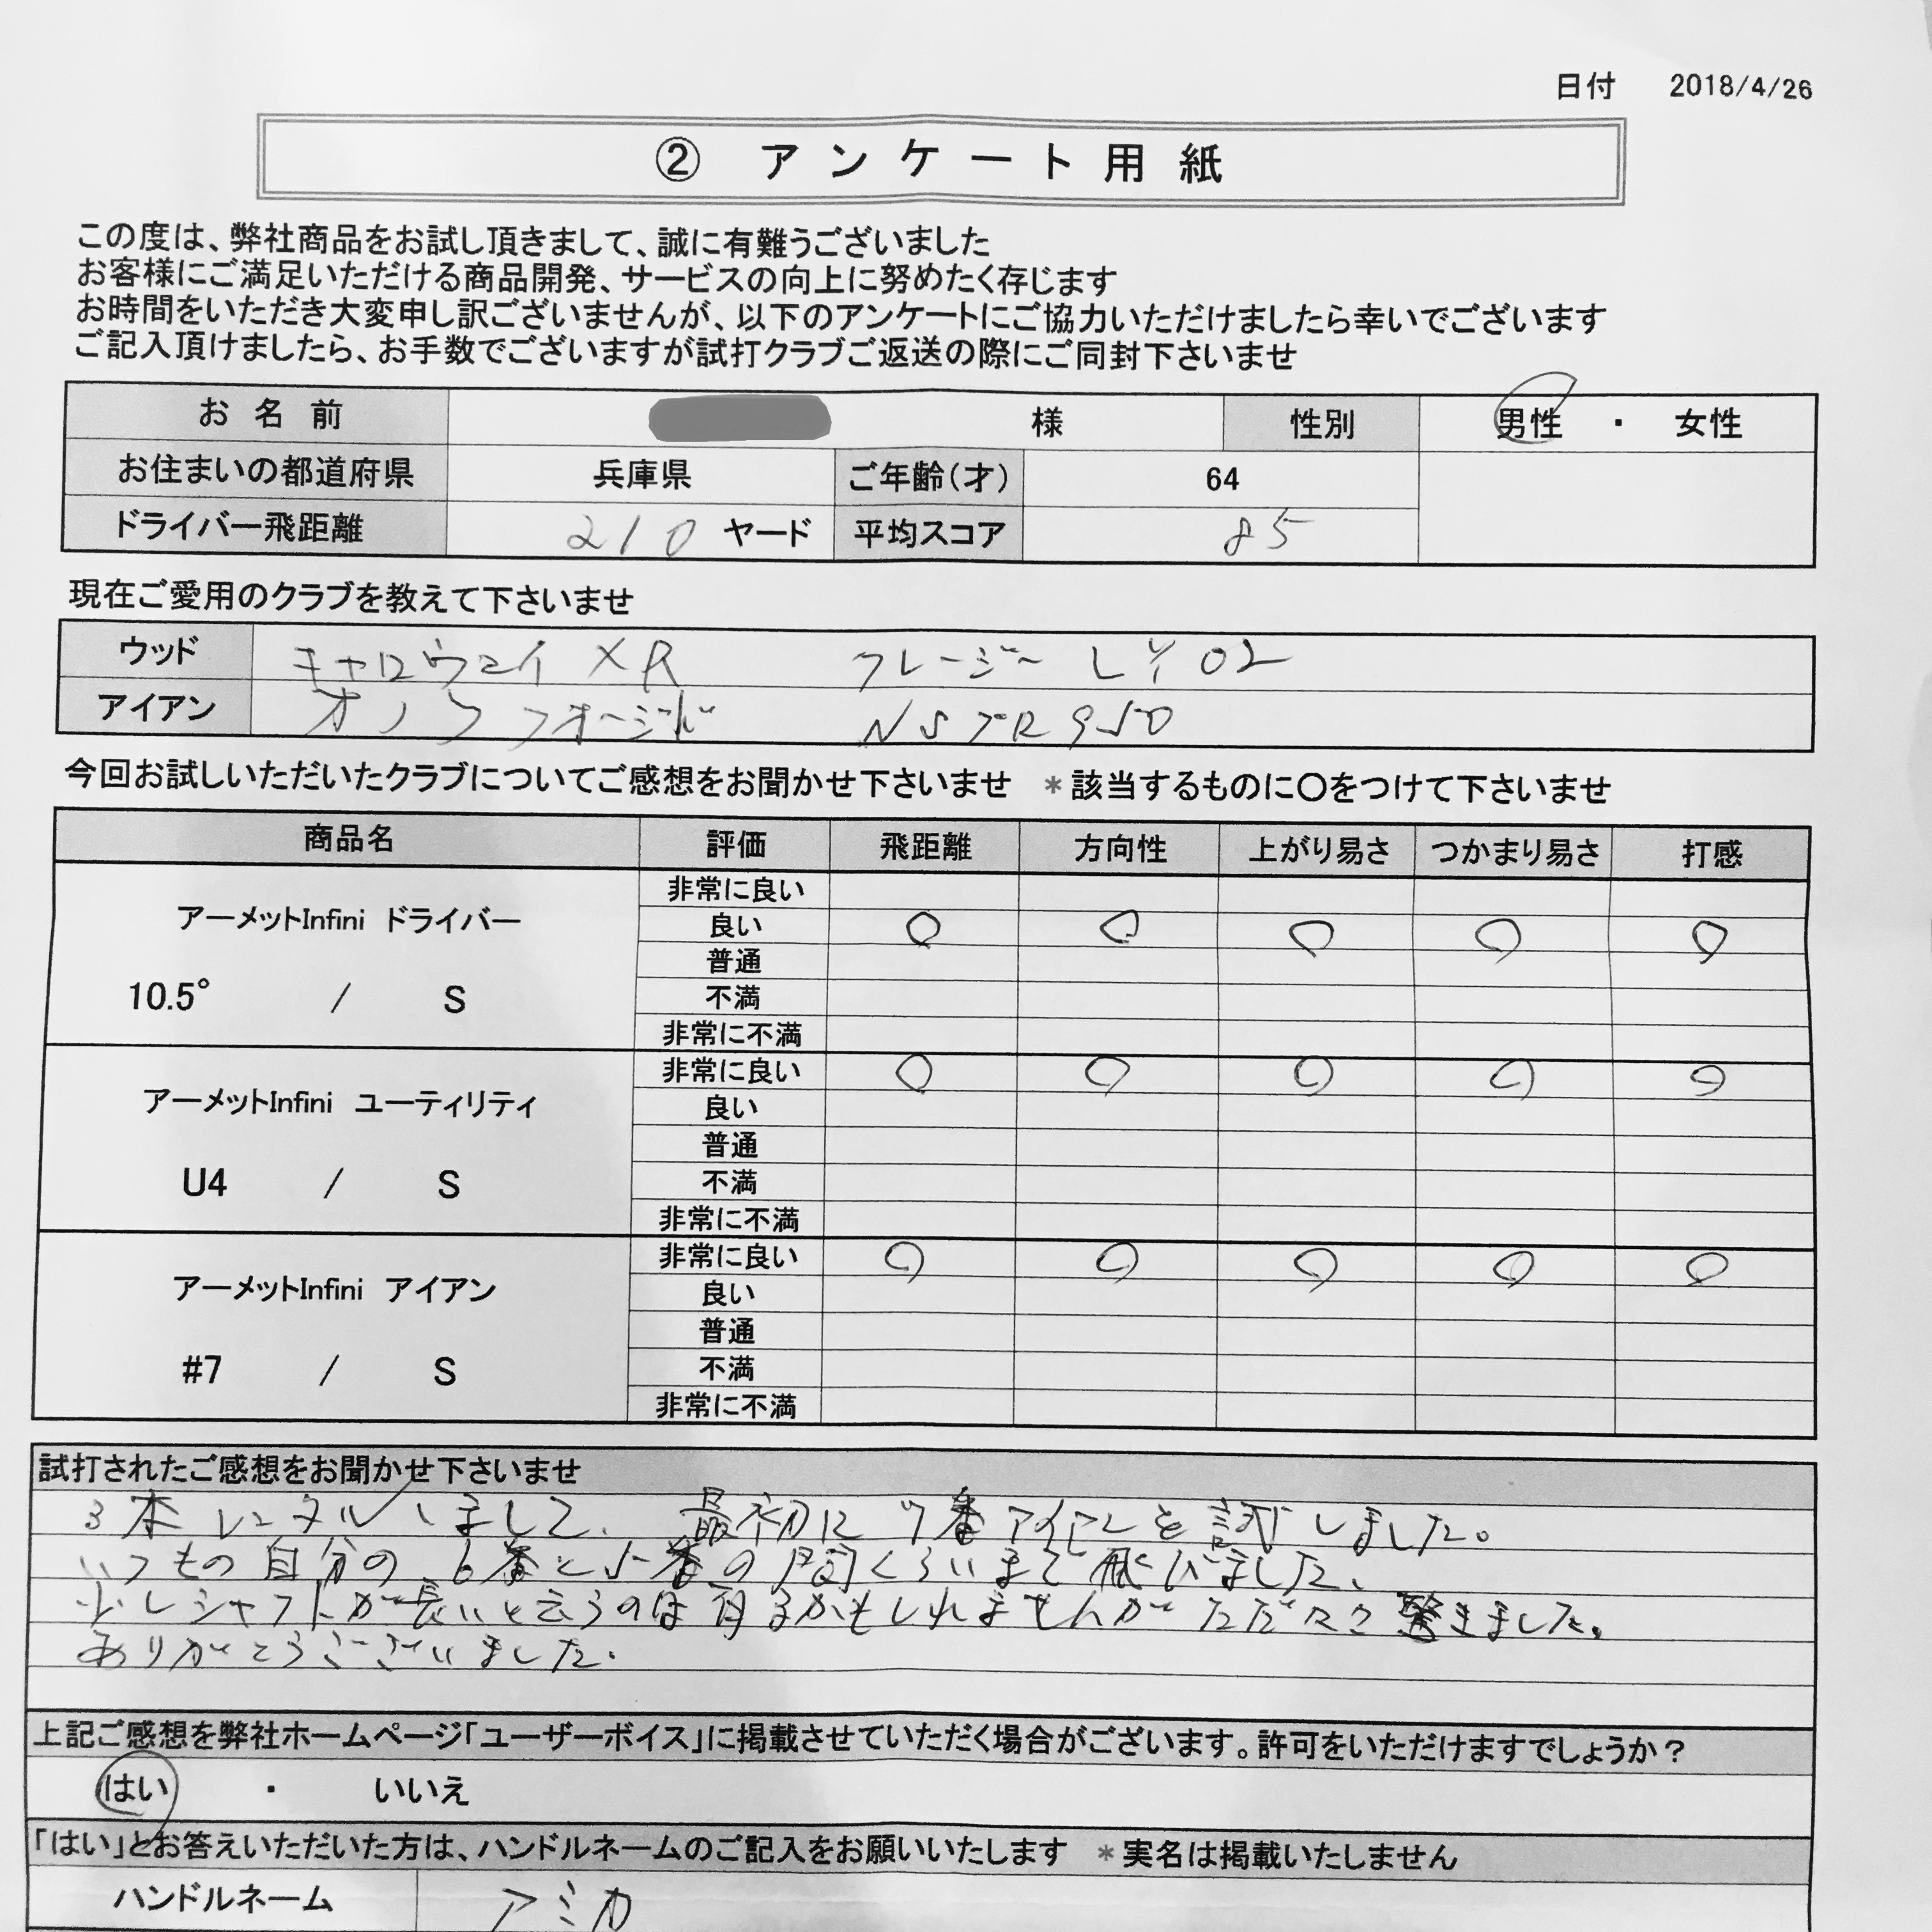 日付 2018/4/26
② アンケート用紙
この度は、弊社商品をお試し頂きまして、誠に有難うございました
お客様にご満足いただける商品開発、サービスの向上に努めたく存じます
お時間をいただき大変申し訳ございませんが、以下のアンケートにご協力いただけましたら幸いでございます
ご記入頂けましたら、お手数でございますが試打クラブご返送の際にご同封下さいませ
お名前 様 性別 男性 ・ 女性
お住まいの都道府県 兵庫県 ご年齢(才) 64
ドライバー飛距離 210 ヤード 平均スコア 85
現在ご愛用のクラブを教えて下さいませ
ウッド キャロウェイ XR クレージー LY 02
アイアン オノフ フォージド NSPR950
今回お試しいただいたクラブについてご感想をお聞かせ下さいませ *該当するものに〇をつけて下さいませ
商品名 評価 飛距離 方向性 上がり易さ つかまり易さ 打感
アーメットInfini ドライバー
10.5° / S
非常に良い
良い 〇 〇 〇 〇 〇
普通
不満
非常に不満
アーメットInfini ユーティリティ
U4 / S
非常に良い 〇 〇 〇 〇 〇
良い
普通
不満
非常に不満
アーメットInfini アイアン
#7 / S
非常に良い 〇 〇 〇 〇 〇
良い
普通
不満
非常に不満
試打されたご感想をお聞かせ下さいませ
3本レンタルしまして、最初に7番アイアンを試しました。
いつもの自分の6番と5番の間くらいまで飛びました、
少しシャフトが長いと云うのは有るかもしれませんがただただ驚きました。
ありがとうございました.
上記ご感想を弊社ホームページ「ユーザーボイス」に掲載させていただく場合がございます。許可をいただけますでしょうか?
はい ・ いいえ
「はい」とお答えいただいた方は、ハンドルネームのご記入をお願いいたします *実名は掲載いたしません
ハンドルネーム アミカ